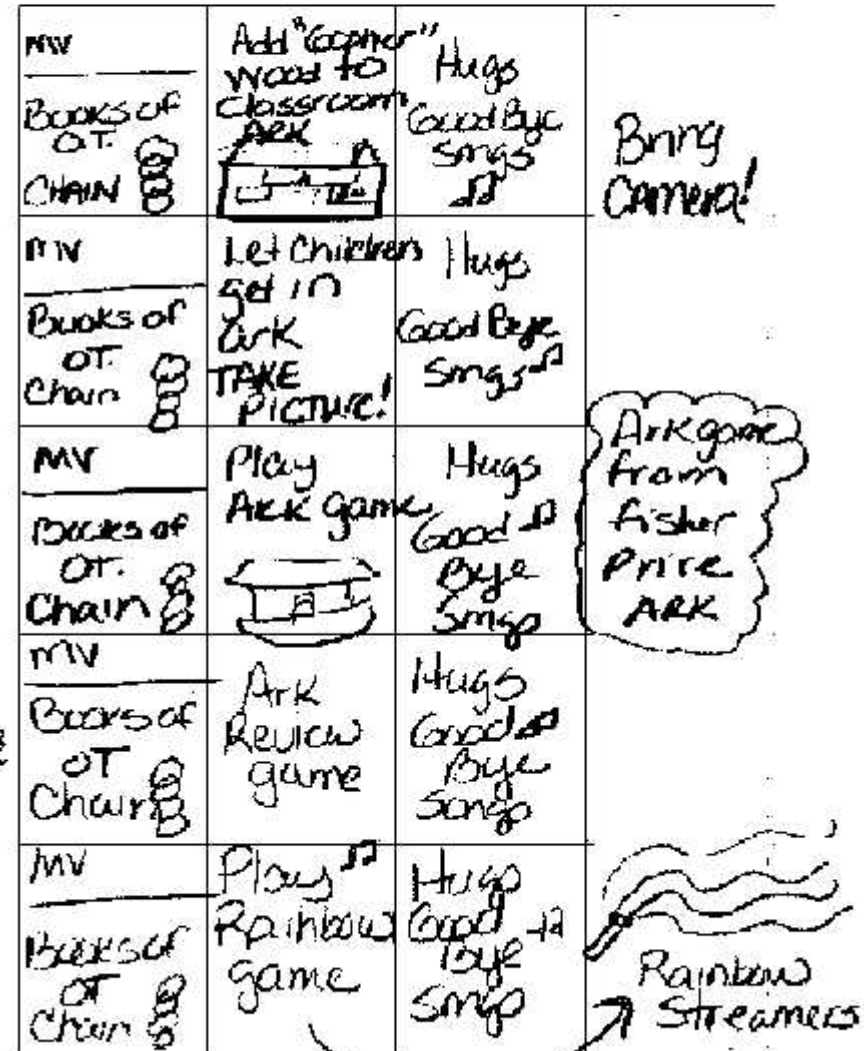 MV
Books of
OT.
CHAIN
Add "Gopher"
Wood to
Classroom
ARK
Hugs
Good Bye
Songs
Bring
Camera!
MV
Books of
OT.
Chain
Let Children
get in
ark
TAKE
PICTURE!
Hugs
Good Bye
Songs
MV
Books of
OT.
Chain
Play
ARK game
Hugs
Good
Bye
Songs
Ark game
from
fisher
Price
ARK
MV
Books of
OT
Chain
Ark
Review
game
Hugs
Good
Bye
Songs
MV
Books of
OT
Chain
Play
Rainbow
game
Hugs
Good
Bye
Songs
Rainbow
Streamers